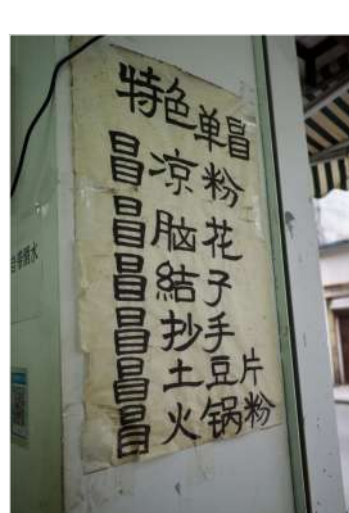 特色单冒
冒凉粉
冒脑花
冒結子
冒抄手
冒土豆片
冒火锅粉